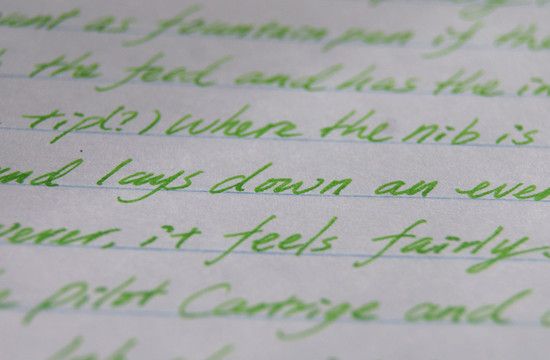 unt as fountain pen if the
the feed and has the in
tip?) where the nib is
and lays down an even
wever, it feels fairly
pilot Cartrige and